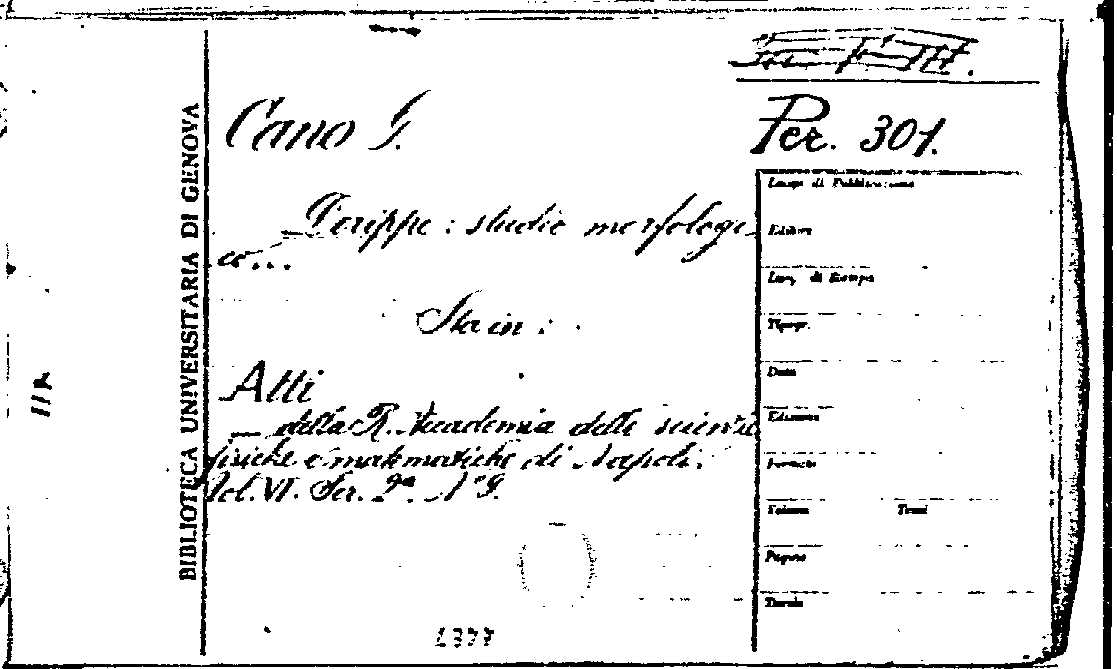 Per. 301.
Cano G.
Dorippe: studio morfologi
co...
Sta in:
Atti
della R. Accademia delle scienze
fisiche e matematiche di Napoli.
Vol. VI. Ser. 2a. N° 9.
BIBLIOTECA UNIVERSITARIA DI GENOVA
Luogo di Pubblicazione
Editore
Luog. di Stampa
Tipogr.
Data
Edizione
Formato
Volume Tomi
Pagine
Tavole